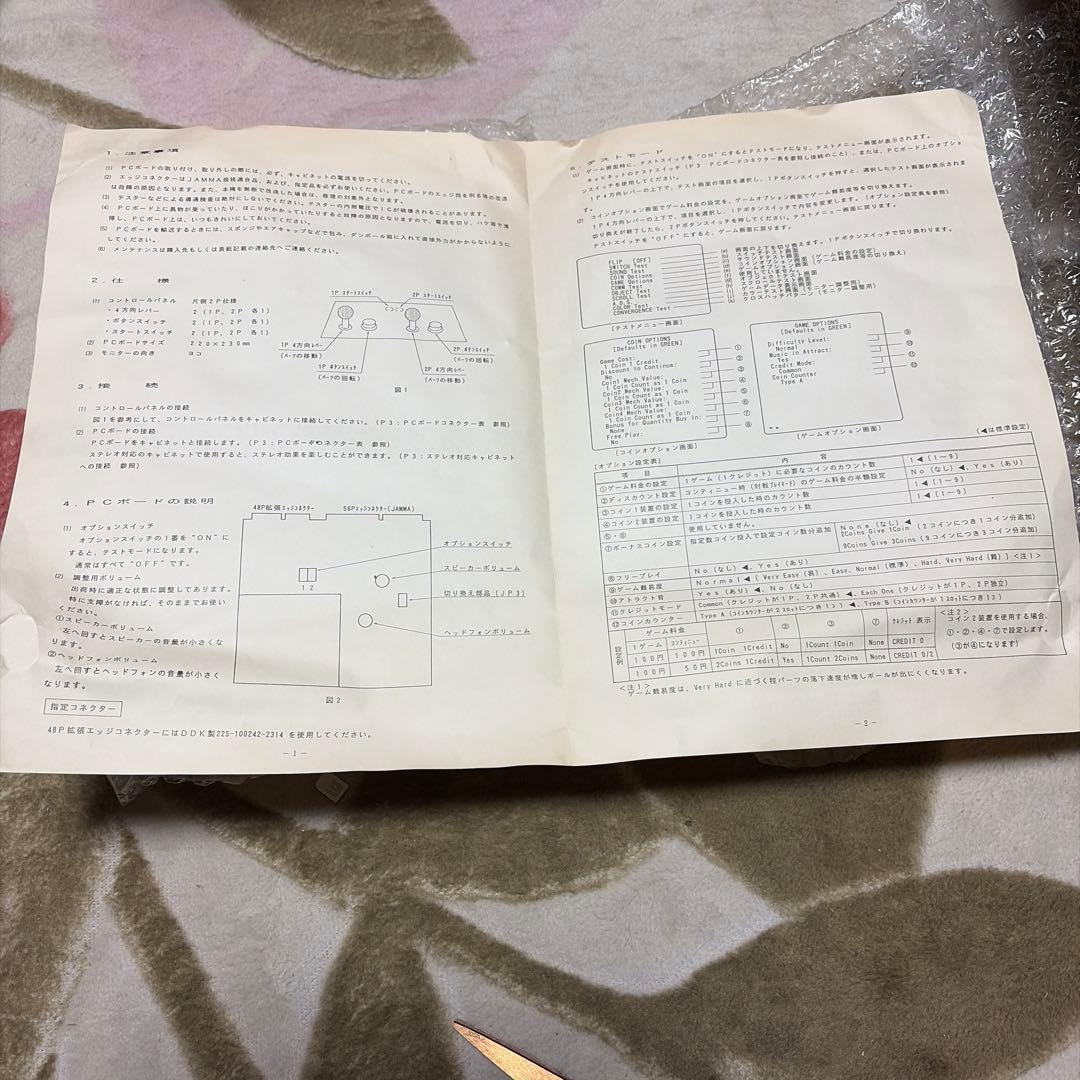 1．注意事項
(1) PCボードの取り付け、取り外しの際には、必ず、キャビネットの電源を切ってください。
(2) エッジコネクターはJAMMA規格適合品、および、指定品を必ずお使いください。PCボードのエッジ部を削る等の改造
は故障の原因となります。また、本機を無断で改造した場合は、修理の対象外となります。
(3) テスターなどによる導通検査は絶対にしないでください。テスターの内部電圧でICが破壊されることがあります。
(4) PCボード上に異物が乗っていたり、ほこりがかかっていたりすると故障の原因となりますので、電源を切り、ハケ等で清
掃し、PCボード上は、いつもきれいにしておいてください。
(5) PCボードを輸送するときには、スポンジやエアキャップなどで包み、ダンボール箱に入れて直接外力がかからないように
してください。
(6) メンテナンスは購入先もしくは表紙記載の連絡先へご連絡ください。
2．仕　様
(1) コントロールパネル　片側2P仕様
・4方向レバー　2（1P、2P 各1）
・ボタンスイッチ　2（1P、2P 各1）
・スタートスイッチ　2（1P、2P 各1）
(2) PCボードサイズ　220×230mm
(3) モニターの向き　ヨコ
1P スタートスイッチ
2P スタートスイッチ
1P 4方向レバー
(パーツの移動)
1P ボタンスイッチ
(パーツの回転)
2P ボタンスイッチ
(パーツの回転)
2P 4方向レバー
(パーツの移動)
図1
3．接　続
(1) コントロールパネルの接続
図1を参考にして、コントロールパネルをキャビネットに接続してください。（P3：PCボードコネクター表　参照）
(2) PCボードの接続
PCボードをキャビネットと接続します。（P3：PCボードコネクター表　参照）
ステレオ対応のキャビネットで使用すると、ステレオ効果を楽しむことができます。（P3：ステレオ対応キャビネット
への接続　参照）
4．PCボードの説明
(1) オプションスイッチ
オプションスイッチの1番を"ON"に
すると、テストモードになります。
通常はすべて"OFF"です。
(2) 調整用ボリューム
出荷時に適正な状態に調整してあります。
特に支障がなければ、そのままでお使い
ください。
①スピーカーボリューム
左へ回すとスピーカーの音量が小さくな
ります。
②ヘッドフォンボリューム
左へ回すとヘッドフォンの音量が小さく
なります。
48P拡張エッジコネクター
56Pエッジコネクター(JAMMA)
オプションスイッチ
スピーカーボリューム
切り換え部品(JP3)
ヘッドフォンボリューム
1 2
図2
指定コネクター
48P拡張エッジコネクターにはDDK製225-100242-2314 を使用してください。
－1－
5．テストモード
(1) ゲーム画面時に、テストスイッチを"ON"にするとテストモードになり、テストメニュー画面が表示されます。
キャビネットのテストスイッチ（P3：PCボードコネクター表を参照し接続のこと）、または、PCボード上のオプショ
ンスイッチを使用してください。
1P4方向レバーの上下で、テスト画面の項目を選択し、1Pボタンスイッチを押すと、選択したテスト画面が表示されま
す。
(2) コインオプション画面でゲーム料金の設定を、ゲームオプション画面でゲーム難易度等を切り換えます。
1P4方向レバーの上下で、項目を選択し、1Pボタンスイッチで内容を変更します。（オプション設定表を参照）
切り換えが終了したら、2Pボタンスイッチを押してください。テストメニュー画面に戻ります。
テストスイッチを"OFF"にすると、ゲーム画面に戻ります。
FLIP [OFF]
SWITCH Test
SOUND Test
COIN Options
GAME Options
COMM Test
OBJECT Test
SCROLL Test
A.D.S
COLOR Test
CONVERGENCE Test
画面の上下を切り換えます。1Pボタンスイッチで切り換わります。
スイッチテスト画面
サウンドテスト画面
コインオプション画面（ゲーム料金の設定）
ゲームオプション画面（ゲーム難易度等の切り換え）
使用していません。
オブジェクトテスト画面
スクロールテスト画面
ゲームデータ表示画面
カラーテスト画面（モニター調整用）
クロスハッチパターン（モニター調整用）
［テストメニュー画面］
COIN OPTIONS
[Defaults in GREEN]
Game Cost:
1 Coin 1 Credit
Discount to Continue:
No
Coin1 Mech Value:
1 Coin Count as 1 Coin
Coin2 Mech Value:
1 Coin Count as 1 Coin
Coin3 Mech Value:
1 Coin Count as 1 Coin
Coin4 Mech Value:
1 Coin Count as 1 Coin
Bonus for Quantity Buy In:
None
Free Play:
No
①
②
③
④
⑤
⑥
⑦
⑧
［コインオプション画面］
GAME OPTIONS
[Defaults in GREEN]
Difficulty Level:
Normal
Music in Attract:
Yes
Credit Mode:
Common
Coin Counter
Type A
⑨
⑩
⑪
⑫
［ゲームオプション画面］
［オプション設定表］
（◀は標準設定）
項　目　内　容
①ゲーム料金の設定　1ゲーム（1クレジット）に必要なコインのカウント数　1◀（1～9）
②ディスカウント設定　コンティニュー時（対戦プレイモード）のゲーム料金の半額設定　No（なし）◀、Yes（あり）
③コイン1装置の設定　1コインを投入した時のカウント数　1◀（1～9）
④コイン2装置の設定　1コインを投入した時のカウント数　1◀（1～9）
⑤・⑥　使用していません。
⑦ボーナスコイン設定　指定数コイン投入で設定コイン数分追加　None（なし）◀
2Coins Give 1Coin（2コインにつき1コイン分追加）
9Coins Give 3Coins（9コインにつき3コイン分追加）
⑧フリープレイ　No（なし）◀、Yes（あり）
⑨ゲーム難易度　Normal◀（Very Easy（易）、Easy、Normal（標準）、Hard、Very Hard（難））＜注1＞
⑩アトラクト音　Yes（あり）◀、No（なし）
⑪クレジットモード　Common（クレジットが1P、2P共通）◀、Each One（クレジットが1P、2P独立）
⑫コインカウンター　Type A（コインカウンターが2スロットにつき1コ）◀、Type B（コインカウンターが1スロットにつき1コ）
設定例　ゲーム料金　①　②　③　⑦　クレジット表示
1ゲーム　コンティニュー
100円　100円　1Coin 1Credit　No　1Count 1Coin　None　CREDIT 0
100円　50円　2Coins 1Credit　Yes　1Count 2Coins　None　CREDIT 0/2
＜注2＞
コイン2装置を使用する場合、
①・②・④・⑦で設定します。
（③が④になります）
＜注1＞
ゲーム難易度は、Very Hard に近づく程パーツの落下速度が増しボールが出にくくなります。
－2－